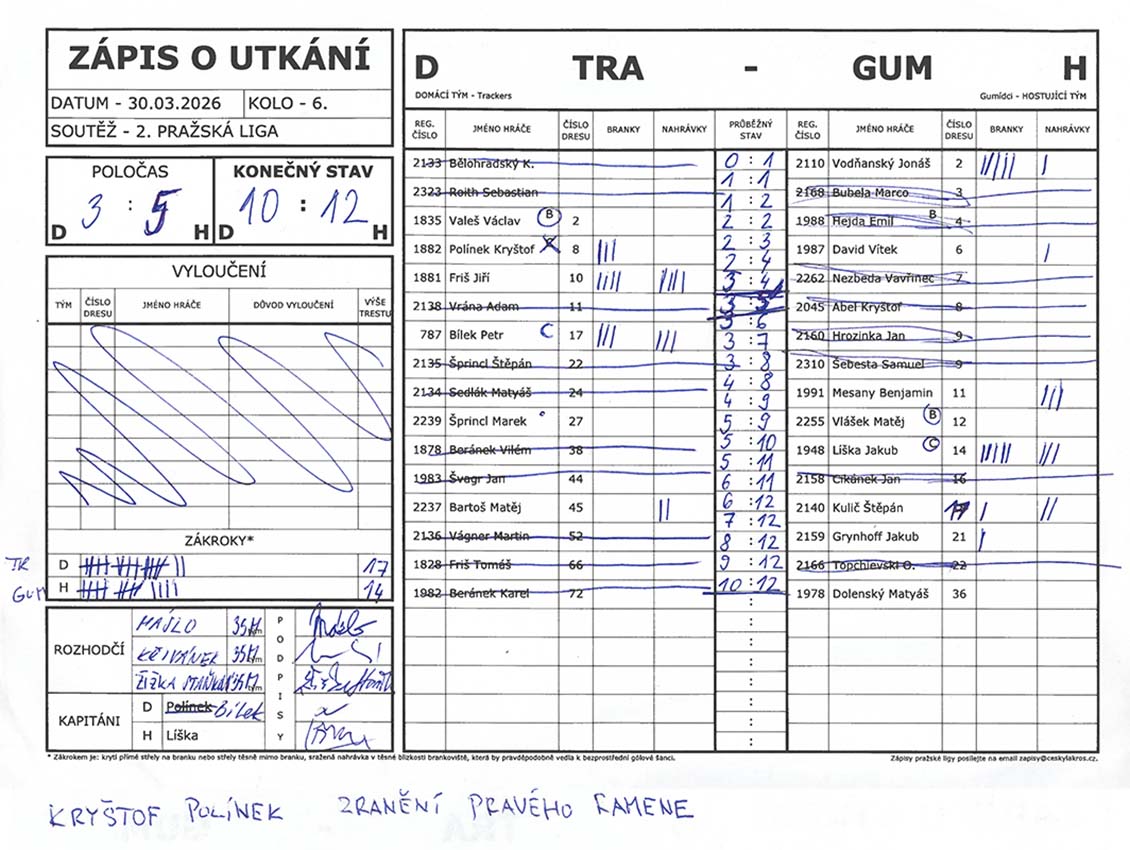 ZÁPIS O UTKÁNÍ
DATUM - 30.03.2026 KOLO - 6.
SOUTĚŽ - 2. PRAŽSKÁ LIGA
POLOČAS KONEČNÝ STAV
3 : 5 10 : 12
D H D H
VYLOUČENÍ
TÝM ČÍSLO DRESU JMÉNO HRÁČE DŮVOD VYLOUČENÍ VÝŠE TRESTU
ZÁKROKY*
TR D 17
GUM H 14
ROZHODČÍ
MÁSLO 35
KŘIVÁNEK 35
ŽIŽKA 35
PODPISY
KAPITÁNI
D Polínek Bílek
H Líška
D TRA - GUM H
DOMÁCÍ TÝM - Trackers Gumídci - HOSTUJÍCÍ TÝM
REG. ČÍSLO JMÉNO HRÁČE ČÍSLO DRESU BRANKY NAHRÁVKY PRŮBĚŽNÝ STAV REG. ČÍSLO JMÉNO HRÁČE ČÍSLO DRESU BRANKY NAHRÁVKY
2133 Bělohradský K. 0 : 1 2110 Vodňanský Jonáš 2 ||||| |
1 : 1
2323 Roith Sebastian 1 : 2 2168 Bubela Marco 3
1835 Valeš Václav B 2 2 : 2 1988 Hejda Emil B 4
1882 Polínek Kryštof 8 ||| 2 : 3 1987 David Vítek 6 |
2 : 4
1881 Friš Jiří 10 |||| |||| 3 : 4 2262 Nezbeda Vavřinec 7
2138 Vrána Adam 11 3 : 5 2045 Abel Kryštof 8
3 : 6
787 Bílek Petr C 17 ||| ||| 3 : 7 2160 Hrozinka Jan 9
2135 Šprincl Štěpán 22 3 : 8 2310 Šebesta Samuel 9
4 : 8
2134 Sedlák Matyáš 24 4 : 9 1991 Mesany Benjamin 11 |||
2239 Šprincl Marek 27 5 : 9 2255 Vlášek Matěj B 12
5 : 10
1878 Beránek Vilém 38 5 : 11 1948 Líška Jakub C 14 ||||| |||
1983 Švagr Jan 44 6 : 11 2158 Cikánek Jan 16
2237 Bartoš Matěj 45 || 6 : 12 2140 Kulič Štěpán 17 | ||
7 : 12
2136 Vágner Martin 52 8 : 12 2159 Grynhoff Jakub 21 |
1828 Friš Tomáš 66 9 : 12 2166 Topchievski O. 22
1982 Beránek Karel 72 10 : 12 1978 Dolenský Matyáš 36
* Zákrokem je: krytí přímé střely na branku nebo střely těsně mimo branku, sražená nahrávka v těsné blízkosti brankoviště, která by pravděpodobně vedla k bezprostřední gólové šanci. Zápisy pražské ligy posílejte na email zapisy@ceskylakros.cz.
KRYŠTOF POLÍNEK ZRANĚNÍ PRAVÉHO RAMENE